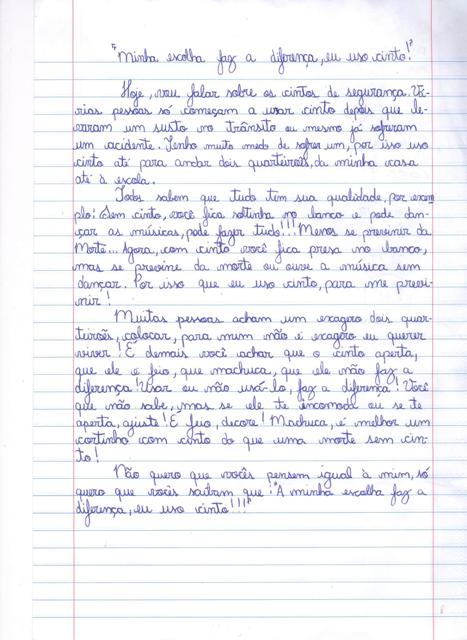 "Minha escolha faz a diferença, eu uso cinto!"
Hoje, vou falar sobre os cintos de segurança. Vá-
rias pessoas só começam a usar cinto depois que le-
varam um susto no trânsito ou mesmo já sofreram
um acidente. Tenho muito medo de sofrer um, por isso uso
cinto até para andar dois quarteirões, da minha casa
até à escola.
Todos sabem que tudo tem sua qualidade, por exem
plo: Sem cinto, você fica soltinha no banco e pode dan-
çar as músicas, pode fazer tudo!!! Menos se previnir da
Morte... Agora, com cinto você fica presa no banco,
mas se previne da morte ou ouve a música sem
dançar. Por isso que eu uso cinto, para me previ-
nir!
Muitas pessoas acham um exagero dois quar-
teirões, colocar, para mim não é exagero eu querer
viver! É demais você achar que o cinto aperta,
que ele é feio, que machuca, que ele não faz a
diferença! Usar ou não usá-lo, faz a diferença! Você
que não sabe, mas se ele te incomoda ou se te
aperta, ajuste! É feio, decore! Machuca, é melhor um
cortinho com cinto do que uma morte sem cin-
to!
Não quero que vocês pensem igual à mim, só
quero que vocês saibam que: "A minha escolha faz a
diferença, eu uso cinto!!!"